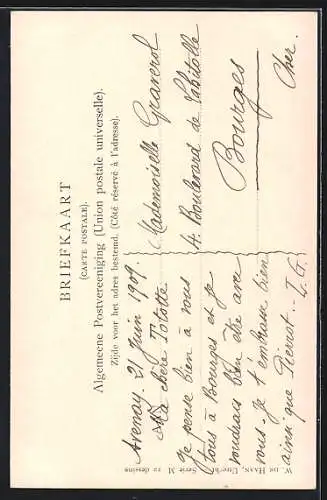 BRIEFKAART
(CARTE POSTALE).
Algemeene Postvereeniging (Union postale universelle).
Zijde voor het adres bestemd. (Côté réservé à l'adresse).
Avenay. 21 Juin 1909.
Ma chère Tototte
Je pense bien à vous
tous à Bourges et je
voudrais bien être avec
vous. Je t'embrasse bien
ainsi que Pierrot. J. G.
Mademoiselle Graverol
4 Boulevard de
Bourges
Cher.
W. DE HAAN, Utrecht. Serie M 12 dessins